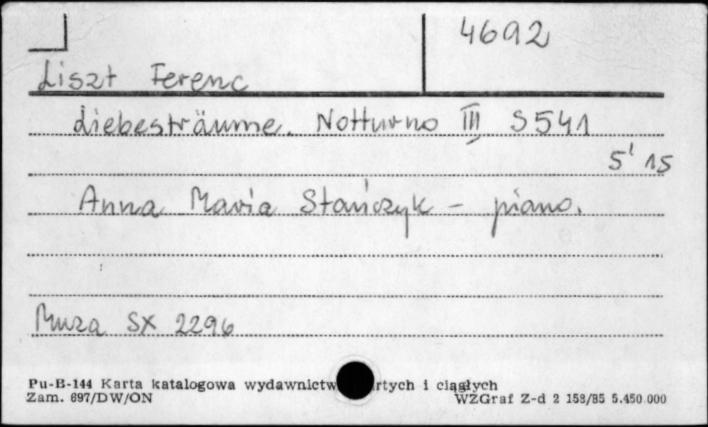 4692
Liszt Ferenc
Liebesträume. Notturno III S541
5' 15
Anna Maria Stańczyk - piano.
Muza SX 2296
Pu-B-144 Karta katalogowa wydawnictw rtych i ciągłych
Zam. 697/DW/ON WZGraf Z-d 2 158/85 5.450.000